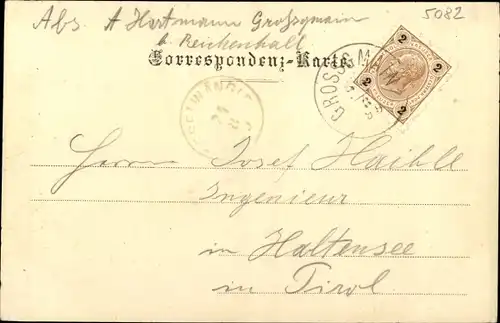 Abs. A Hartmann Grossgmain
b. Reichenhall
5082
Correspondenz-Karte
GROSSGMAIN
2 2
2 2
Herrn Josef Haible
Ingenieur
in Haltensee
in Tirol